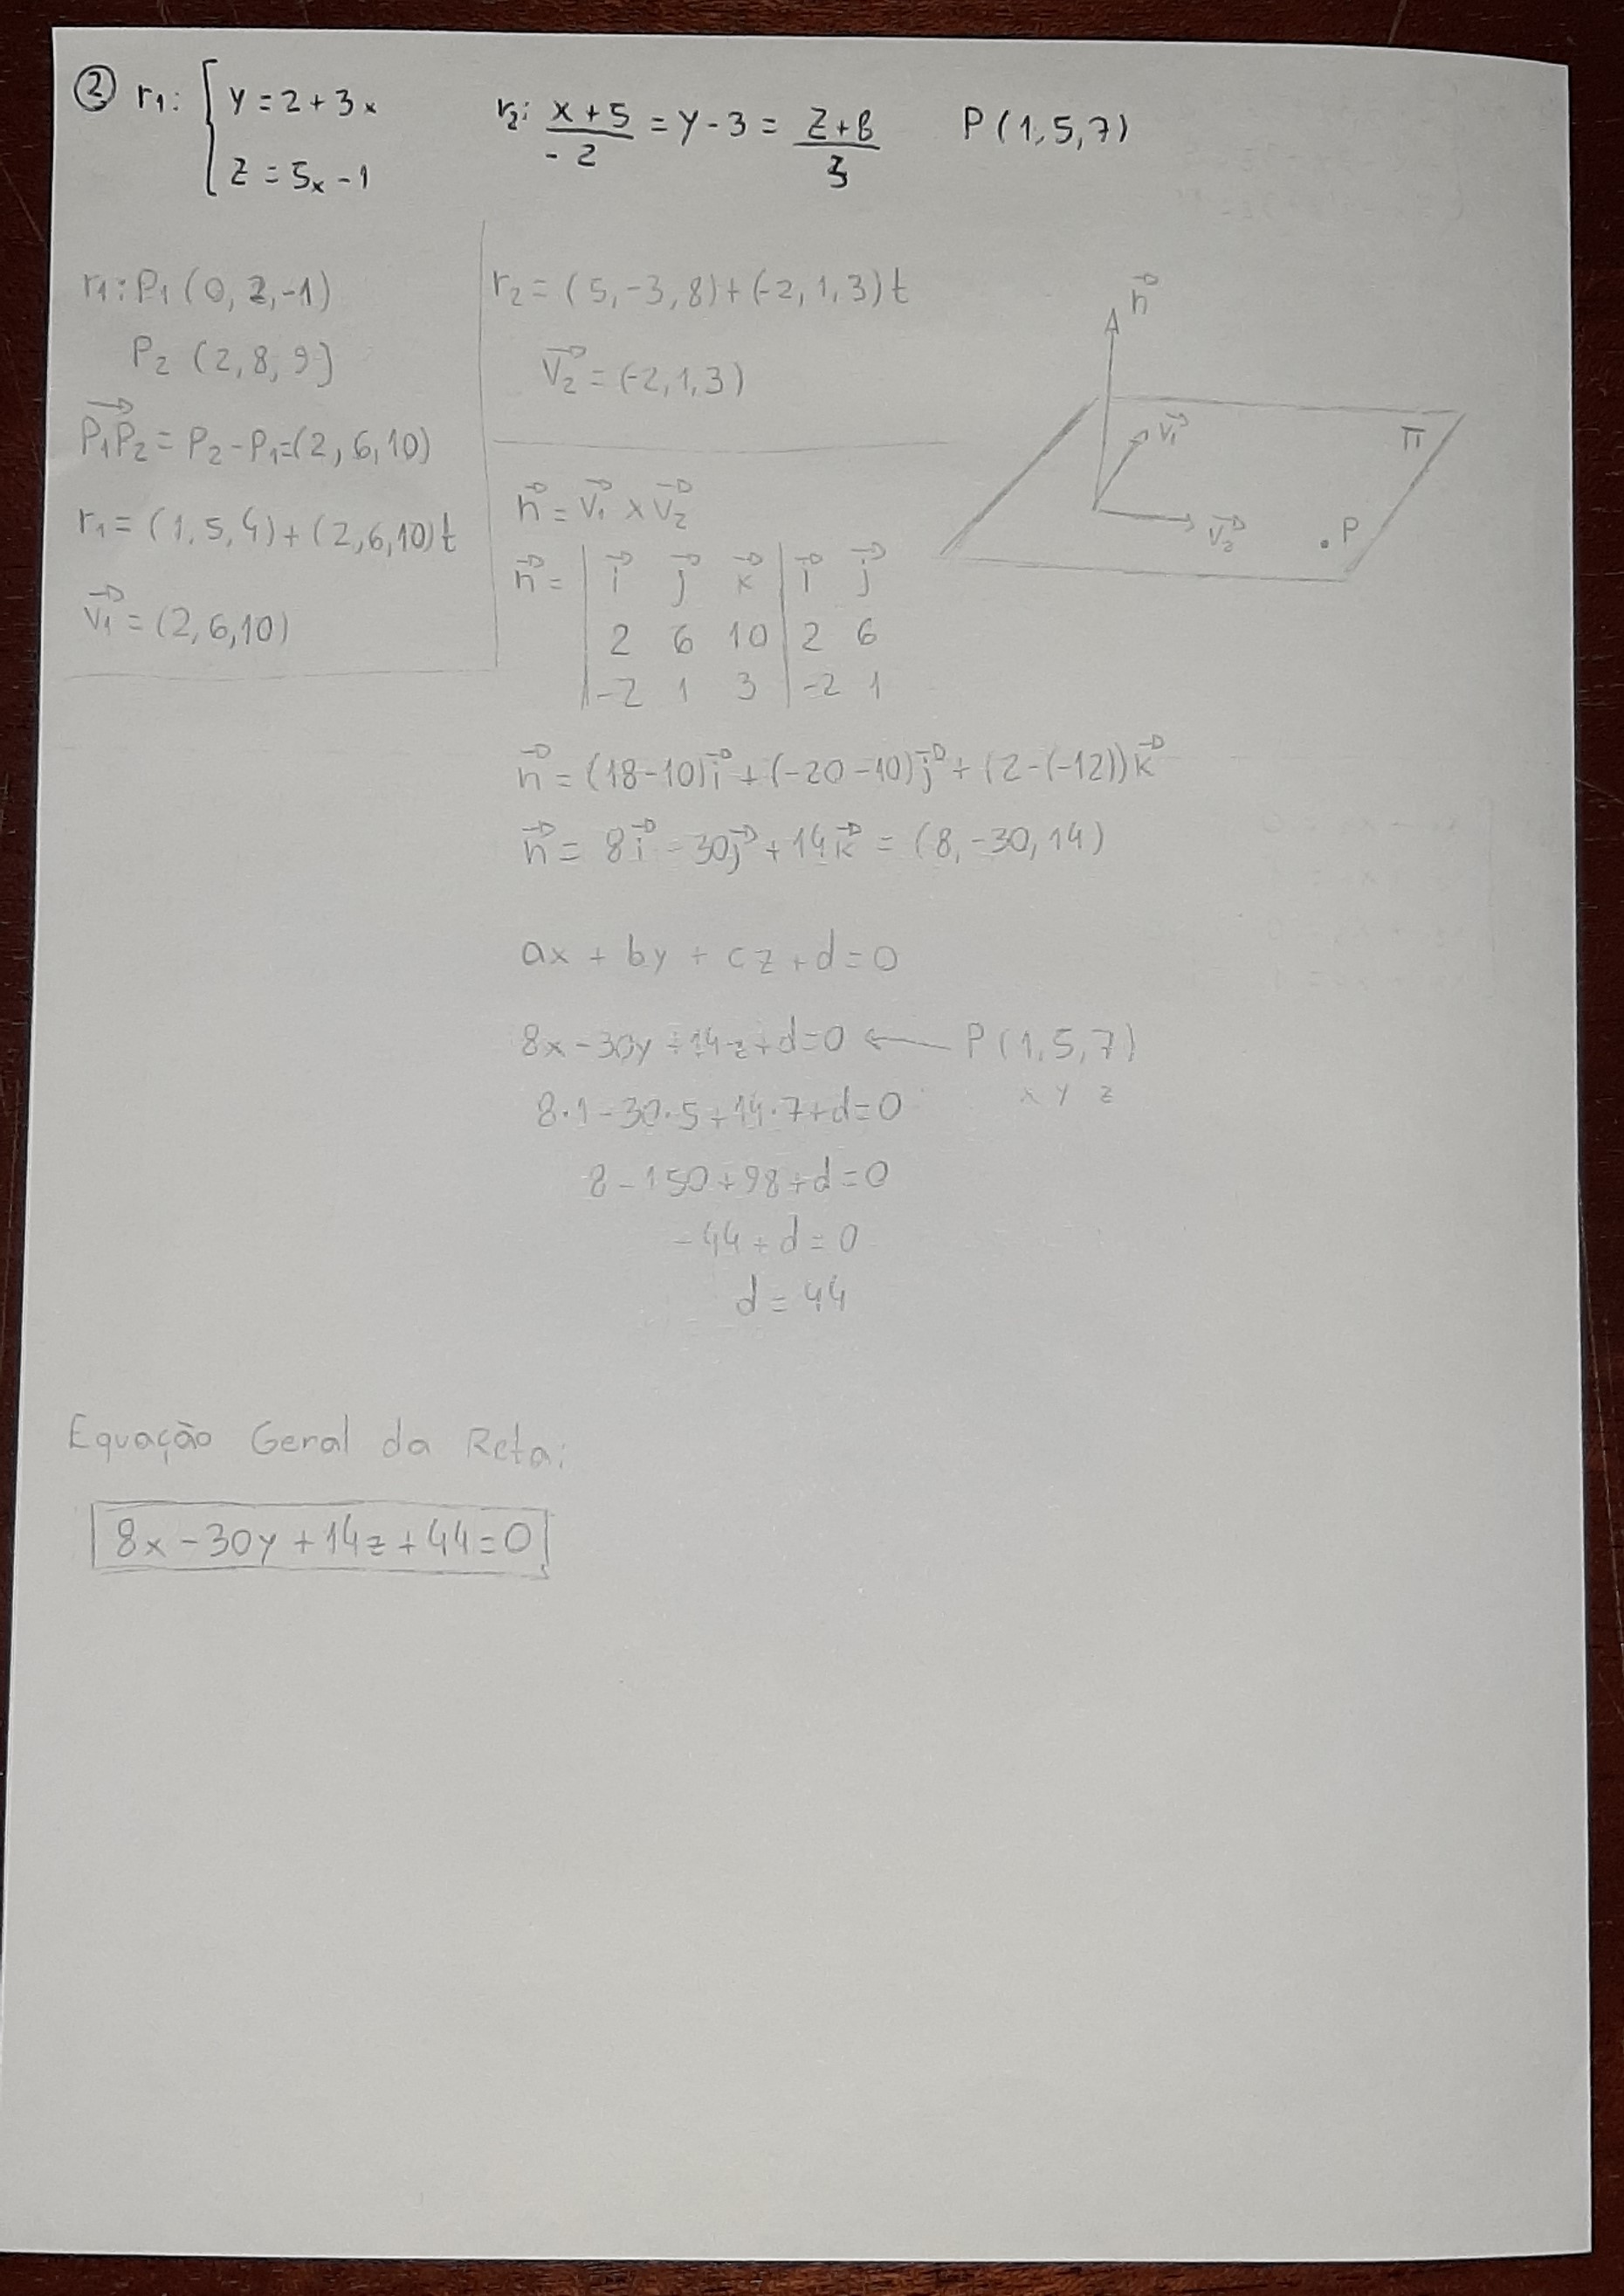 ② r₁: { y = 2 + 3x
z = 5x - 1
r₂: (x + 5)/-2 = y - 3 = (z + 8)/3
P (1, 5, 7)
r₁: P₁ (0, 2, -1)
P₂ (2, 8, 9)
P₁P₂⃗ = P₂ - P₁ = (2, 6, 10)
r₁ = (1, 5, 4) + (2, 6, 10)t
v₁⃗ = (2, 6, 10)
r₂ = (5, -3, 8) + (-2, 1, 3)t
v₂⃗ = (-2, 1, 3)
n⃗ = v₁⃗ x v₂⃗
n⃗ = | i⃗ j⃗ k⃗ | i⃗ j⃗
2 6 10 | 2 6
-2 1 3 | -2 1
n⃗
v₁⃗
π
v₂⃗
. P
n⃗ = (18 - 10)i⃗ + (-20 - 10)j⃗ + (2 - (-12))k⃗
n⃗ = 8i⃗ - 30j⃗ + 14k⃗ = (8, -30, 14)
ax + by + cz + d = 0
8x - 30y + 14z + d = 0 ← P (1, 5, 7)
x y z
8·1 - 30·5 + 14·7 + d = 0
8 - 150 + 98 + d = 0
-44 + d = 0
d = 44
Equação Geral da Reta:
8x - 30y + 14z + 44 = 0